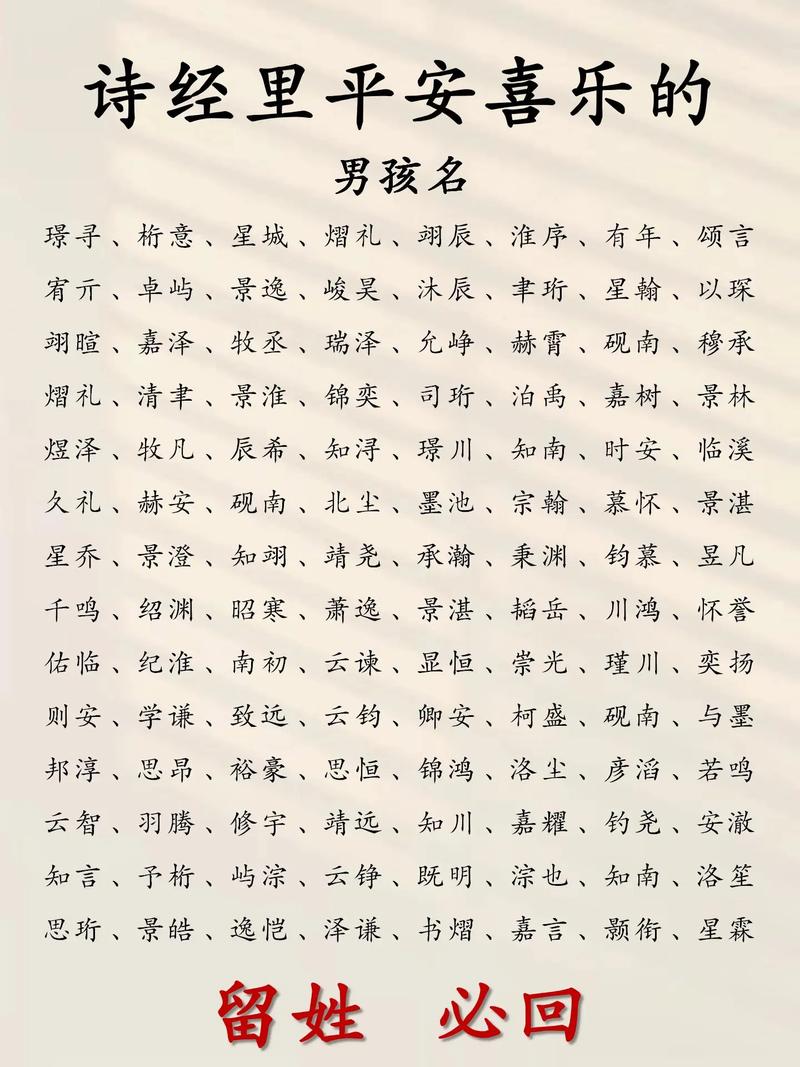 诗经里平安喜乐的
男孩名
璟寻、桁意、星城、熠礼、翊辰、淮序、有年、颂言
宥亓、卓屿、景逸、峻昊、沐辰、聿珩、星翰、以琛
翊暄、嘉泽、牧丞、瑞泽、允峥、赫霄、砚南、穆承
熠礼、清聿、景淮、锦奕、司珩、泊禹、嘉树、景林
煜泽、牧凡、辰希、知浔、璟川、知南、时安、临溪
久礼、赫安、砚南、北尘、墨池、宗翰、慕怀、景湛
星乔、景澄、知翊、靖尧、承瀚、秉渊、钧慕、昱凡
千鸣、绍渊、昭寒、萧逸、景湛、韬岳、川鸿、怀誉
佑临、纪淮、南初、云谏、显恒、崇光、瑾川、奕扬
则安、学谦、致远、云钧、卿安、柯盛、砚南、与墨
邦淳、思昂、裕豪、思恒、锦鸿、洛尘、彦滔、若鸣
云智、羽腾、修宇、靖远、知川、嘉耀、钓尧、安澈
知言、予桁、屿淙、云铮、既明、淙也、知南、洛笙
思珩、景皓、逸恺、泽谦、书熠、嘉言、颢衔、星霖
留姓 必回